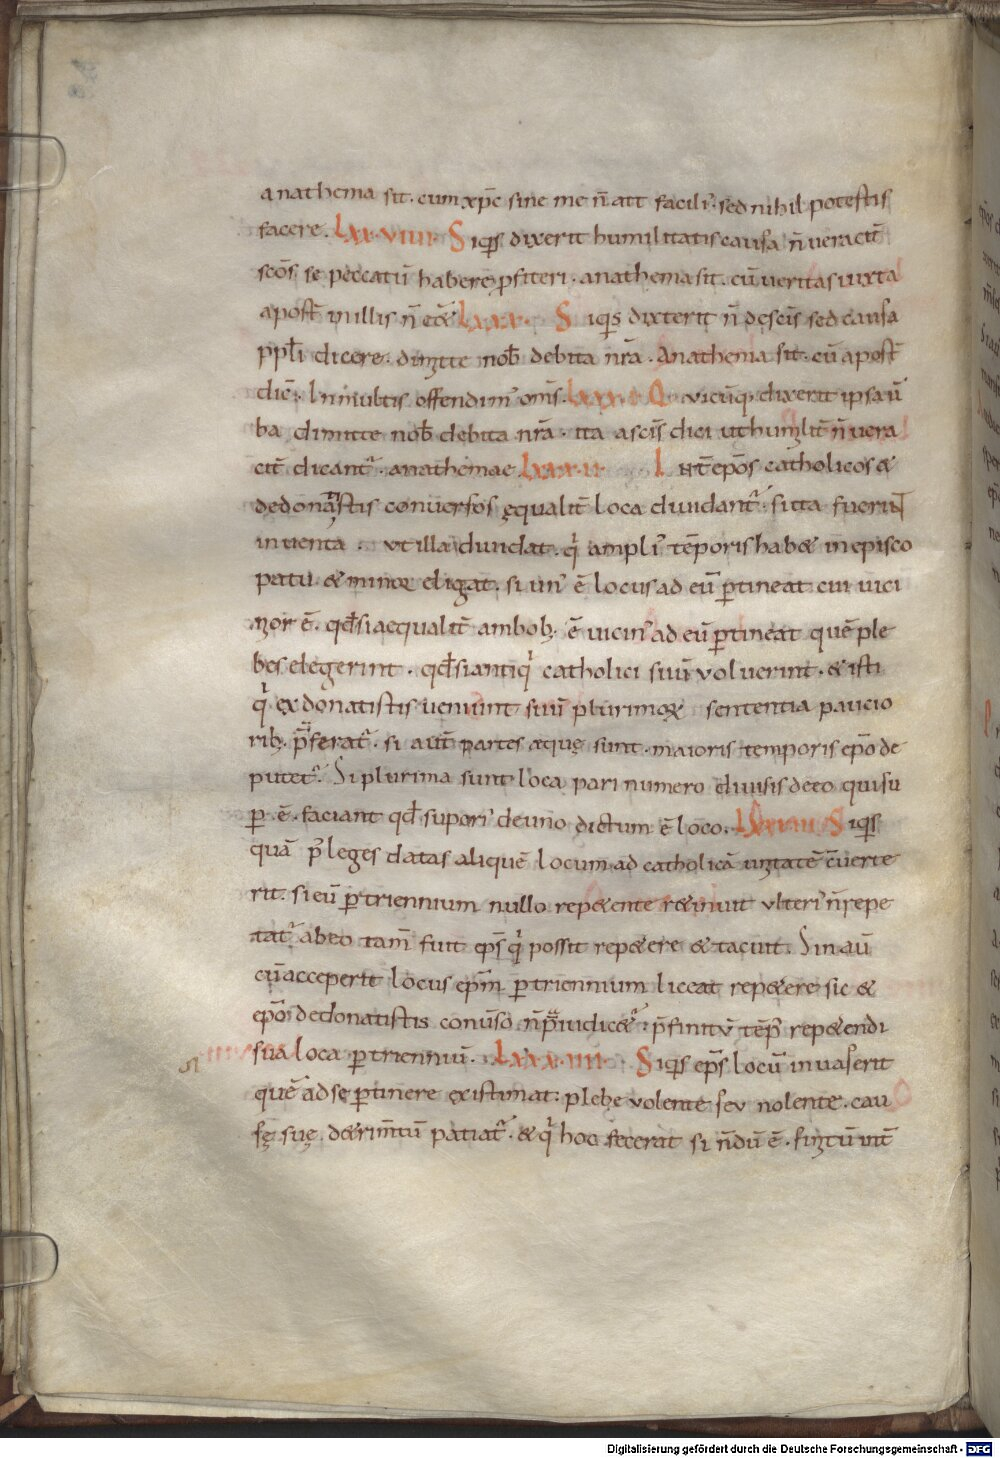 anathema sit. cum xp̄c sine me n̄ att facili᾽. sed nihil potestis
facere. Lxxviiii. Siqs̄ dixerit humilitatis causa n̄ veracit̄
sc̄os se peccatū habere ꝓfiteri. anathema sit. cū veritas iuxta
apost̄ in illis n̄ e. Lxxx. Siqis dixterit n̄ de sc̄is sed causa
ppl̄i dicere. dimitte nob̄ debita nr̄a. Anathema sit. cū apost̄
dic̄. In multis offendim᾽ om̄s. Lxxxi Quicūq. dixerit ipsa ū
ba dimitte nob̄ debita nr̄a. ita a sc̄is dici ut humilit̄ n̄ vera
cit̄ dicant᾽. anathemae Lxxxii It̄ ep̄os catholicos &
de donatistis conversos ęqualit̄ loca dividant᾽. si ita fuerit
inventa. ut illa dividat. q ampli᾽ tēporis hab& in episco
patu & minor eligat. si un᾽ ē locus ad eū ꝑtineat cui vici
nor ē. qđ si aequalit̄ ambob; ē vicin᾽ ad eū ꝑtineat quē ple
bes elegerint. qđ si antiq catholici suū voluerint. & isti
q ex donatistis veniunt suū plurimor sententia paucio
rib; p̄ferat᾽. si aut̄ partes aequę sunt. maioris temporis ep̄o de
putet᾽. Si plurima sunt loca pari numero divisis de eo qui su
ꝑ ē. faciant qđ superi᾽ de uno dictum ē loco. Lxxxiii Siqs̄
quā p᾽ leges datas aliquē locum ad catholicā unitatē c̄verte
rit. si eū ꝑ triennium nullo rep&ente r&inuit ulteri᾽ n̄ repe
tat᾽ ab eo tam̄ fuit ep̄s q possit rep&ere & tacuit. Sin aū
cū acceperit locus ep̄m ꝑ triennium liceat rep&ere sic &
ep̄o de donatistis conv̄so n̄ p̄iudic&᾽. p̄finitū tēp᾽ rep&endi
sua loca ꝑ trienniū. Lxxxiiii. Siqs̄ ep̄s locū invaserit
quē ad se ꝑtinere existimat. plebe volente seu nolente. cau
sę suę d&rim̄tū patiat᾽. & q hoc fecerat si n̄dū ē. finitū int̄
Digitalisierung gefördert durch die Deutsche Forschungsgemeinschaft - DFG